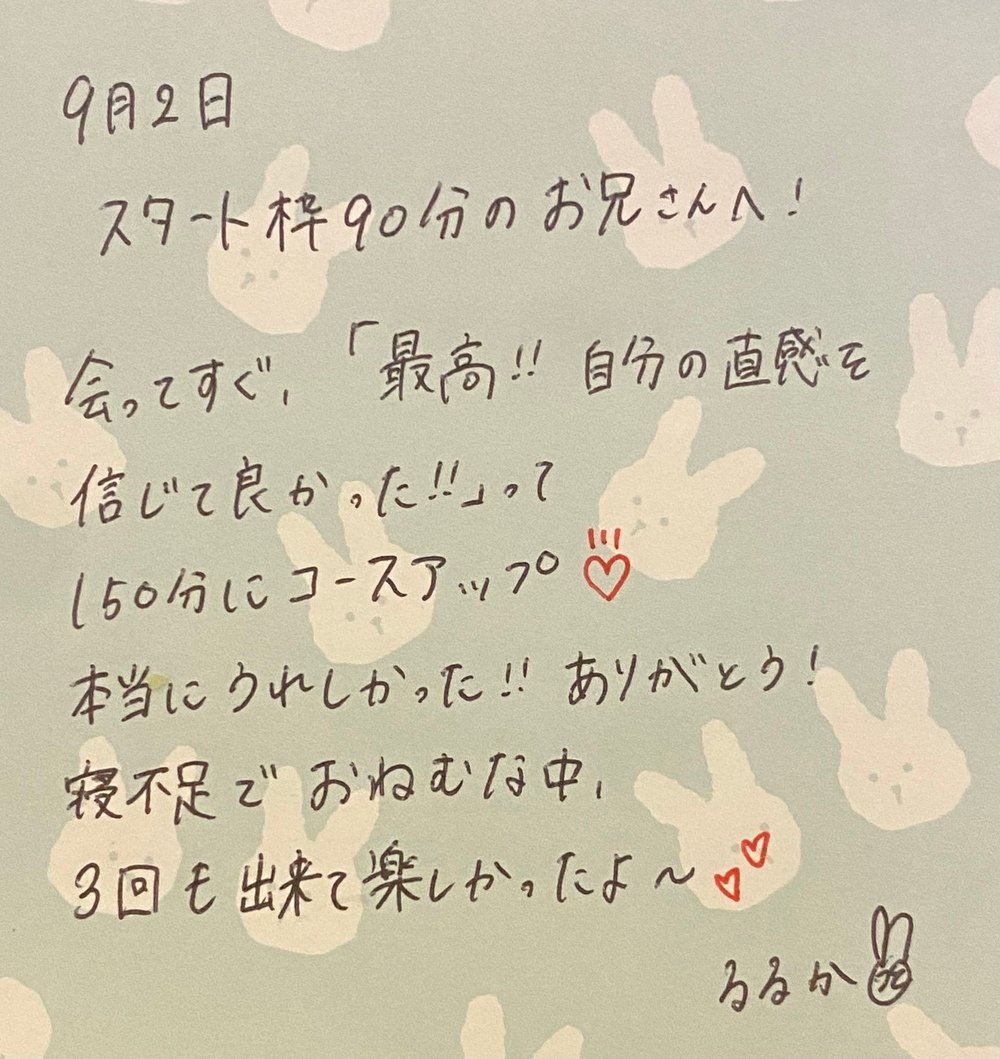 9月2日
スタート枠90分のお兄さんへ!
会ってすぐ、「最高!!自分の直感を
信じて良かった!!」って
150分にコースアップ♡
本当にうれしかった!!ありがとう!
寝不足でおねむな中、
3回も出来て楽しかったよ〜♡♡
るるか